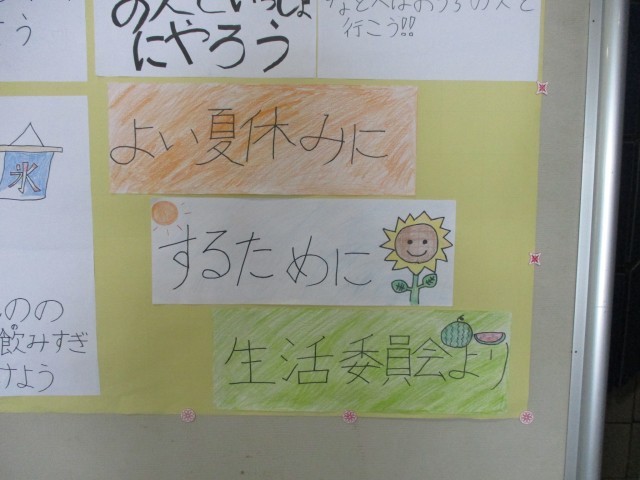 う
の人といっしょ
にやろう
などへはおうちの人と
行こう!!
よい夏休みに
氷
するために
生活委員会より
ものの
飲みすぎ
けよう